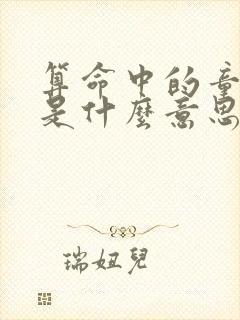 算命中的童
是什麼意思
瑞妞兒